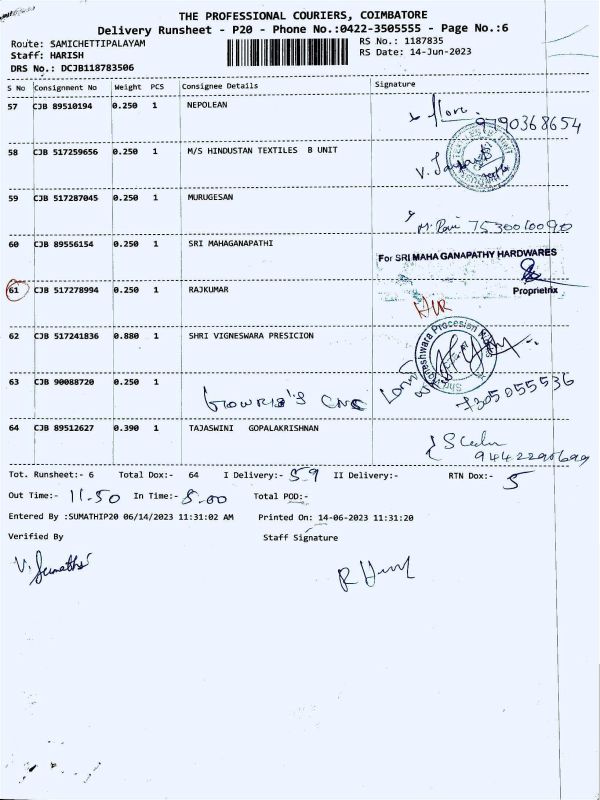 THE PROFESSIONAL COURIERS, COIMBATORE
Delivery Runsheet - P20 - Phone No.:0422-3505555 - Page No.:6
Route: SAMICHETTIPALAYAM
RS No.: 1187835
Staff: HARISH
RS Date: 14-Jun-2023
DRS No.: DCJB118783506
S No Consignment No Weight PCS Consignee Details Signature
57 CJB 89510194 0.250 1 NEPOLEAN
9790368654
58 CJB 517259656 0.250 1 M/S HINDUSTAN TEXTILES B UNIT
59 CJB 517287045 0.250 1 MURUGESAN
M. Ravi 7530010090
60 CJB 89556154 0.250 1 SRI MAHAGANAPATHI
For SRI MAHA GANAPATHY HARDWARES
Proprietrix
61 CJB 517278994 0.250 1 RAJKUMAR
62 CJB 517241836 0.880 1 SHRI VIGNESWARA PRESICION
63 CJB 90088720 0.250 1
GOWRIS'S CNC
7305055536
64 CJB 89512627 0.390 1 TAJASWINI GOPALAKRISHNAN
Tot. Runsheet:- 6 Total Dox:- 64 I Delivery:- 59 II Delivery:- RTN Dox:- 5
Out Time:- 11.50 In Time:- 5.00 Total POD:-
Entered By :SUMATHIP20 06/14/2023 11:31:02 AM Printed On: 14-06-2023 11:31:20
Verified By Staff Signature
V. Sumathi